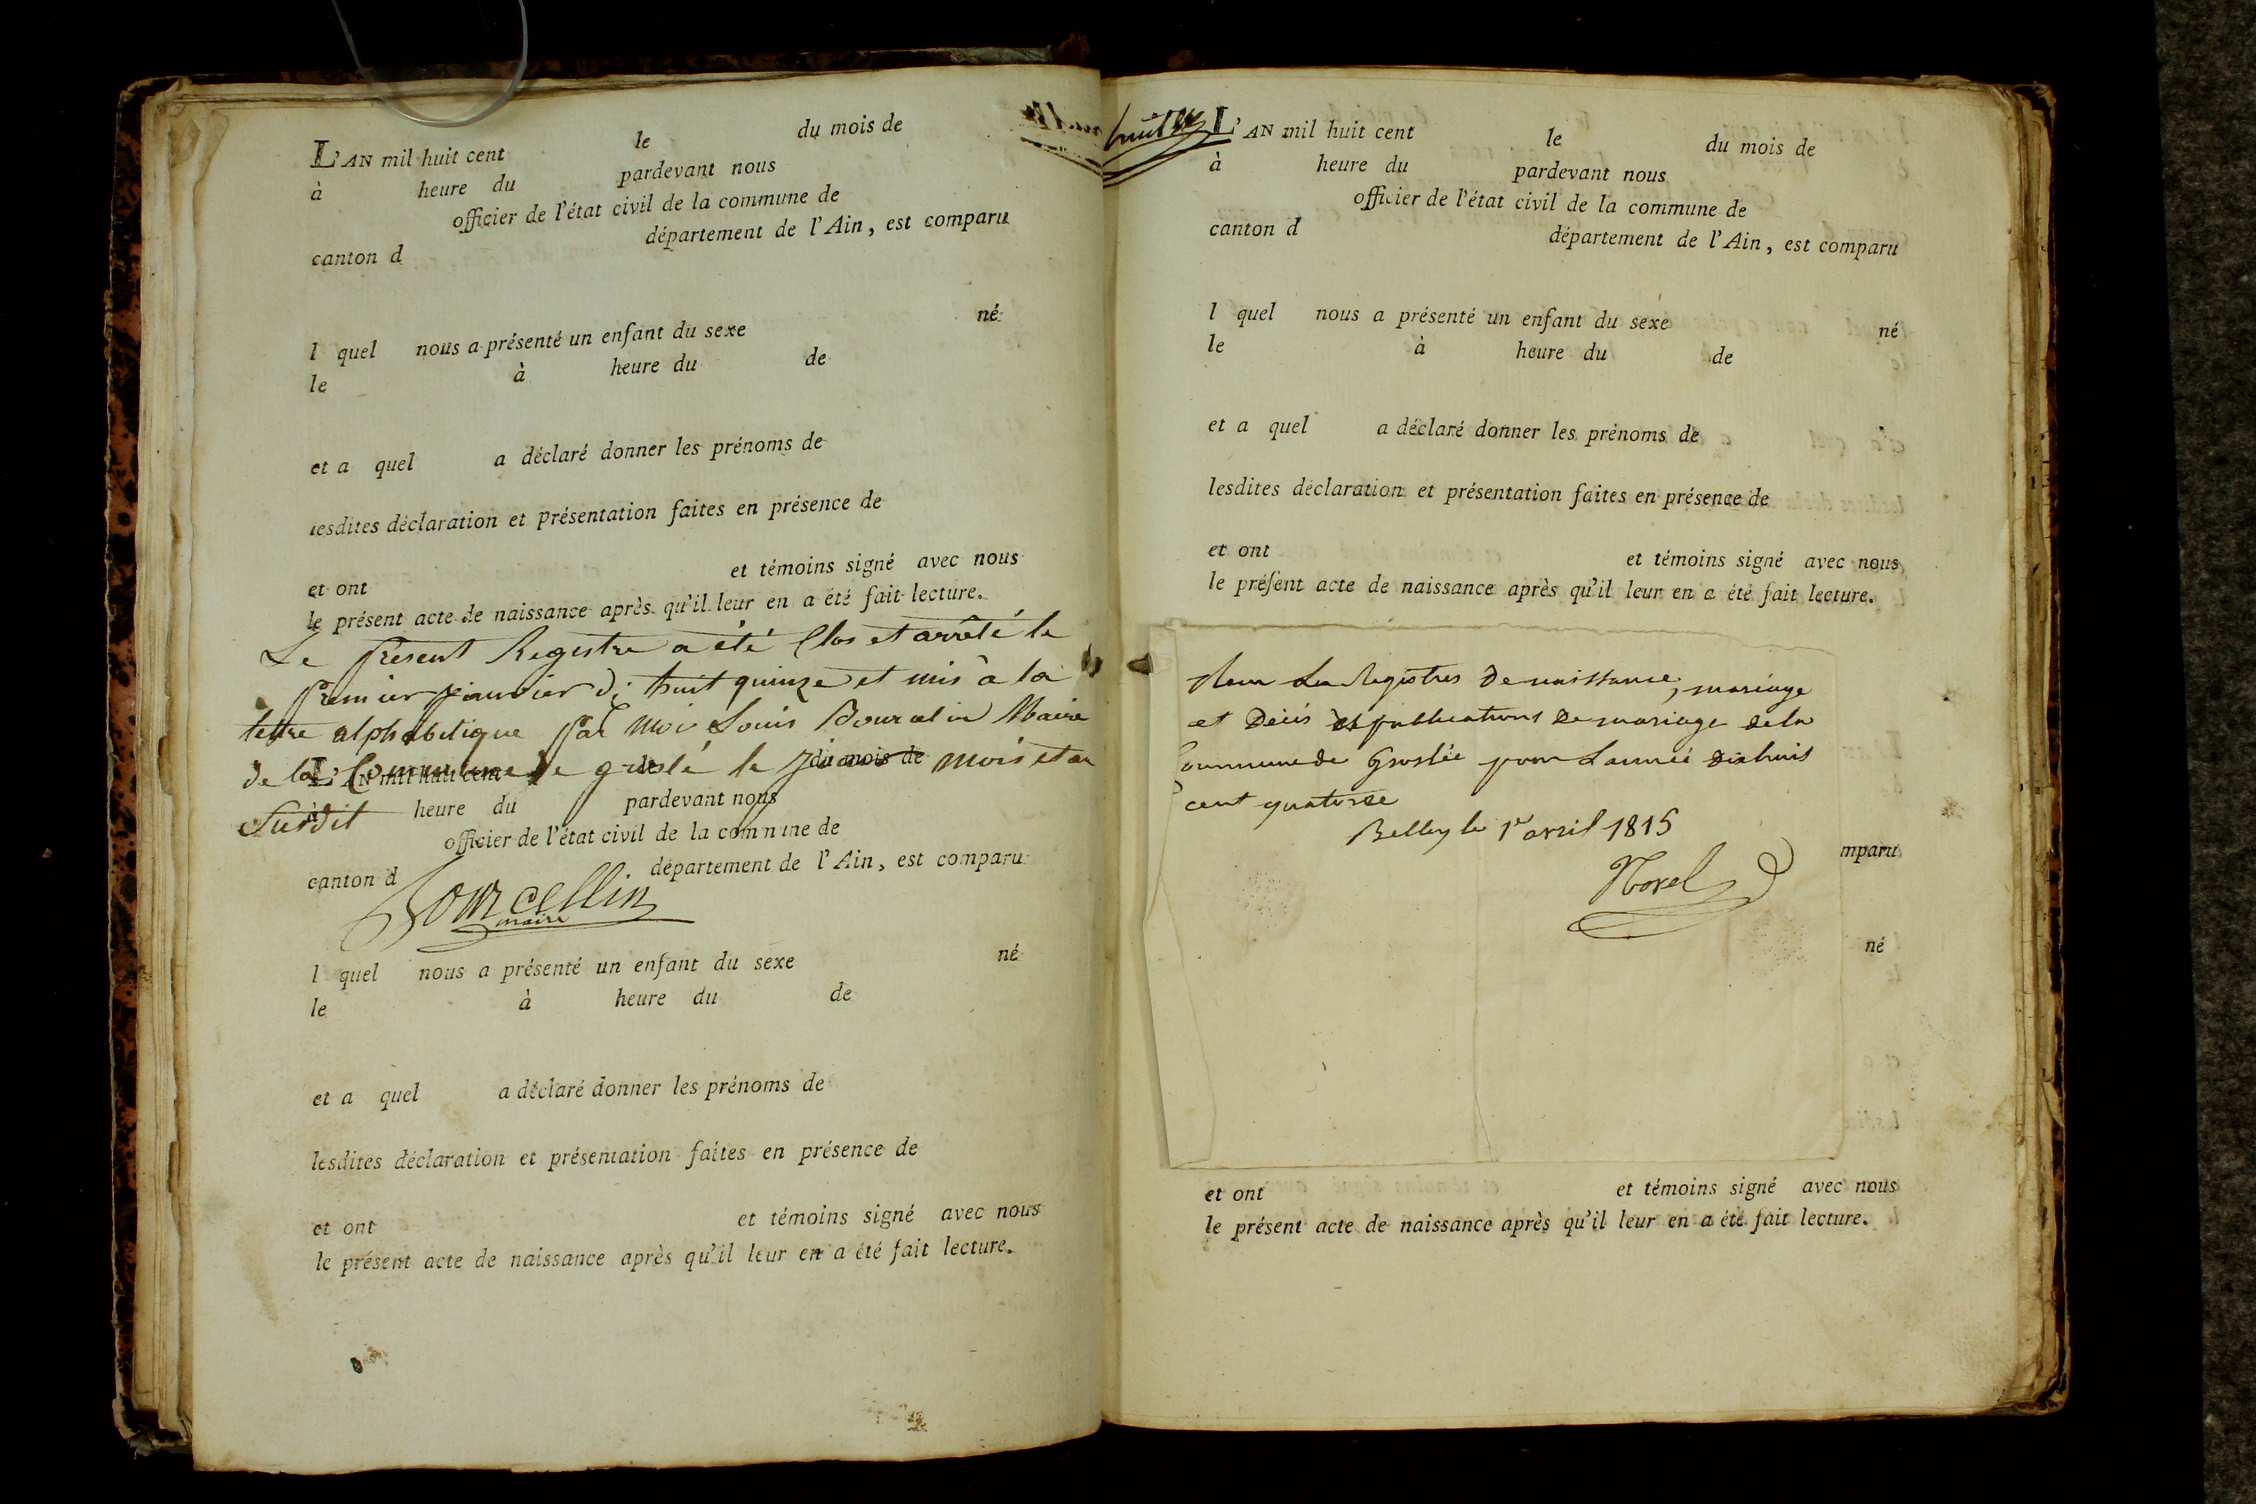 L'AN mil huit cent le du mois de
à heure du pardevant nous
officier de l'état civil de la commune de
canton d département de l'Ain, est comparu
l quel nous a présenté un enfant du sexe né
le à heure du de
et a quel a déclaré donner les prénoms de
lesdites déclaration et présentation faites en présence de
et ont et témoins signé avec nous
le présent acte de naissance après qu'il leur en a été fait lecture.
Le présent Registre a été Clos et arrêté le
premier janvier huit quinze et mis à la
lettre alphabetique par Moi Louis Bourcelin Maire
de la Commune de groslé le jour mois et an
Susdit
L'AN mil huit cent le du mois de
à heure du pardevant nous
officier de l'état civil de la commune de
canton d département de l'Ain, est comparu
Bourcellin
maire
l quel nous a présenté un enfant du sexe né
le à heure du de
et a quel a déclaré donner les prénoms de
lesdites déclaration et présentation faites en présence de
et ont et témoins signé avec nous
le présent acte de naissance après qu'il leur en a été fait lecture.
L'AN mil huit cent le du mois de
à heure du pardevant nous
officier de l'état civil de la commune de
canton d département de l'Ain, est comparu
l quel nous a présenté un enfant du sexe né
le à heure du de
et a quel a déclaré donner les prénoms de
lesdites déclaration et présentation faites en présence de
et ont et témoins signé avec nous
le préſent acte de naissance après qu'il leur en a été fait lecture.
Registres de naissance, mariage
et Décés et publications de mariage de la
Commune de Groslée pour L'année dix huit
cent quatorze
Belley le 1er avril 1815
Morel
mparu
né
et ont et témoins signé avec nous
le présent acte de naissance après qu'il leur en a été fait lecture.